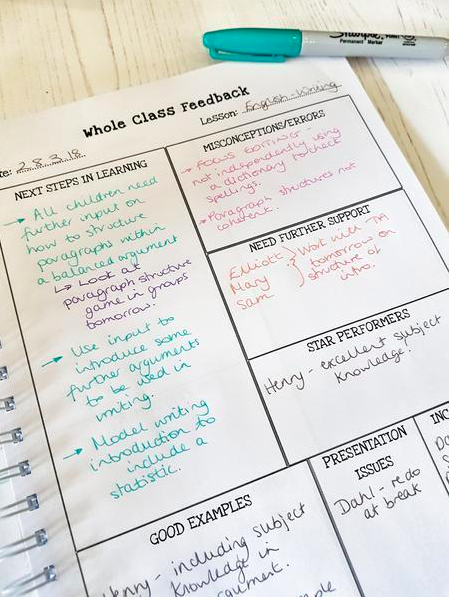 Sharpie
Permanent Marker
Whole Class Feedback
Lesson: English - Writing
te: 28.3.18
NEXT STEPS IN LEARNING
→ All children need
further input on
how to structure
paragraphs within
a balanced argument
↳ Look at
paragraph structure
game in groups
tomorrow.
→ Use input to
introduce some
further arguments
to be used in
writing.
→ Model writing
introduction to
include a
statistic.
MISCONCEPTIONS/ERRORS
→ Focus
not independently using
a dictionary to check
spellings.
→ Paragraph structures not
coherent.
NEED FURTHER SUPPORT
Elliott
Mary
Sam
Work with TA
tomorrow on
structure of
intro.
STAR PERFORMERS
Henry - excellent subject
knowledge.
PRESENTATION
ISSUES
Dahl - redo
at break
INC
GOOD EXAMPLES
Henry - including subject
knowledge in
argument.